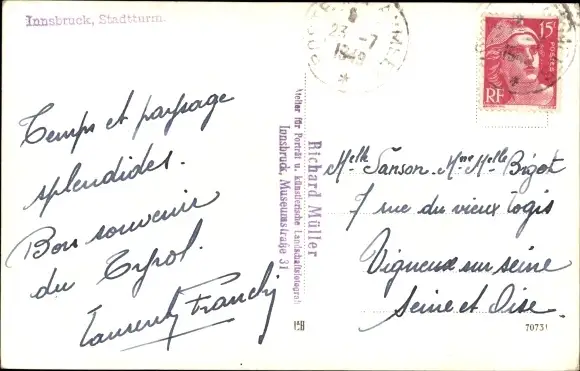 Innsbruck, Stadtturm.
POSTE AUX ARMÉES
*
23-7
1949
*
15F
POSTES
RF
Temps et paysage
splendides.
Bon souvenir
du Tyrol.
Laurent Franchi
Richard Müller
Atelier für Porträt u. künstlerische Landschaftsfotografi
Innsbruck, Museumstraße 31
Melle Sanson. Mme Melle Bigot
7 rue du vieux logis
Vigneux sur seine
Seine et Oise.
70731